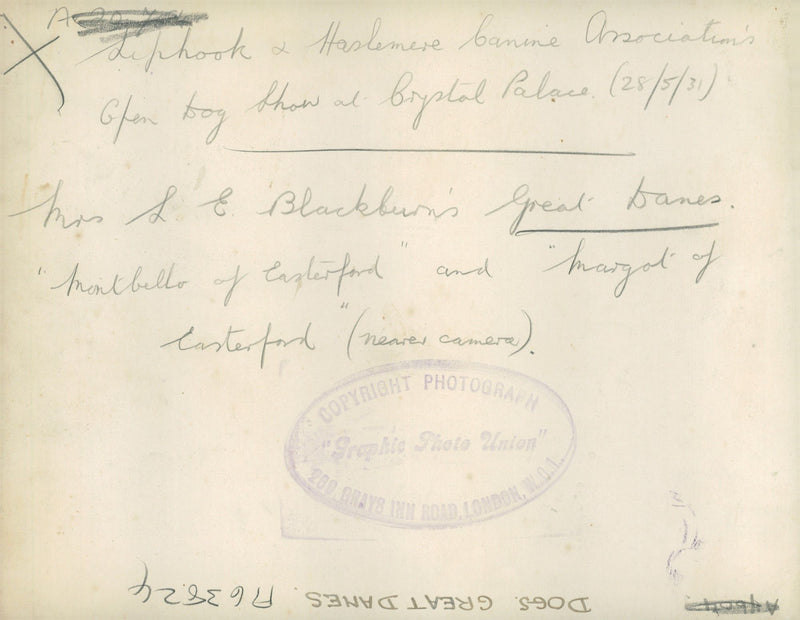 Liphook & Haslemere Canine Association's
Open Dog Show at Crystal Palace. (28/5/31)
Mrs L E Blackburn's Great Danes.
"Montbello of Easterford" and "Margot of
Easterford" (nearer camera).
COPYRIGHT PHOTOGRAPH
"Graphic Photo Union"
200 GRAYS INN ROAD, LONDON, W.C.1.
DOGS. GREAT DANES. A63824